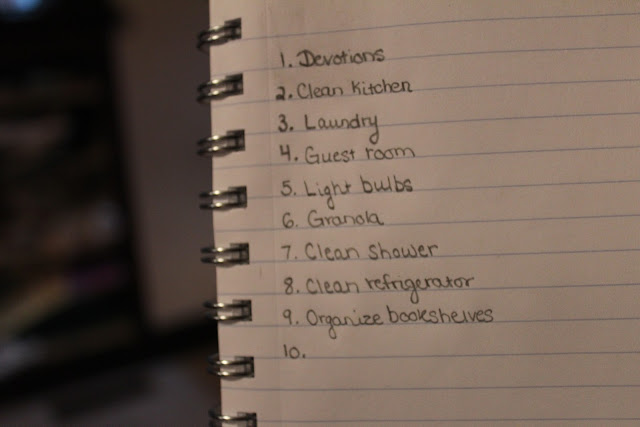 1. Devotions
2. Clean Kitchen
3. Laundry
4. Guest room
5. Light bulbs
6. Granola
7. Clean shower
8. Clean refrigerator
9. Organize bookshelves
10.